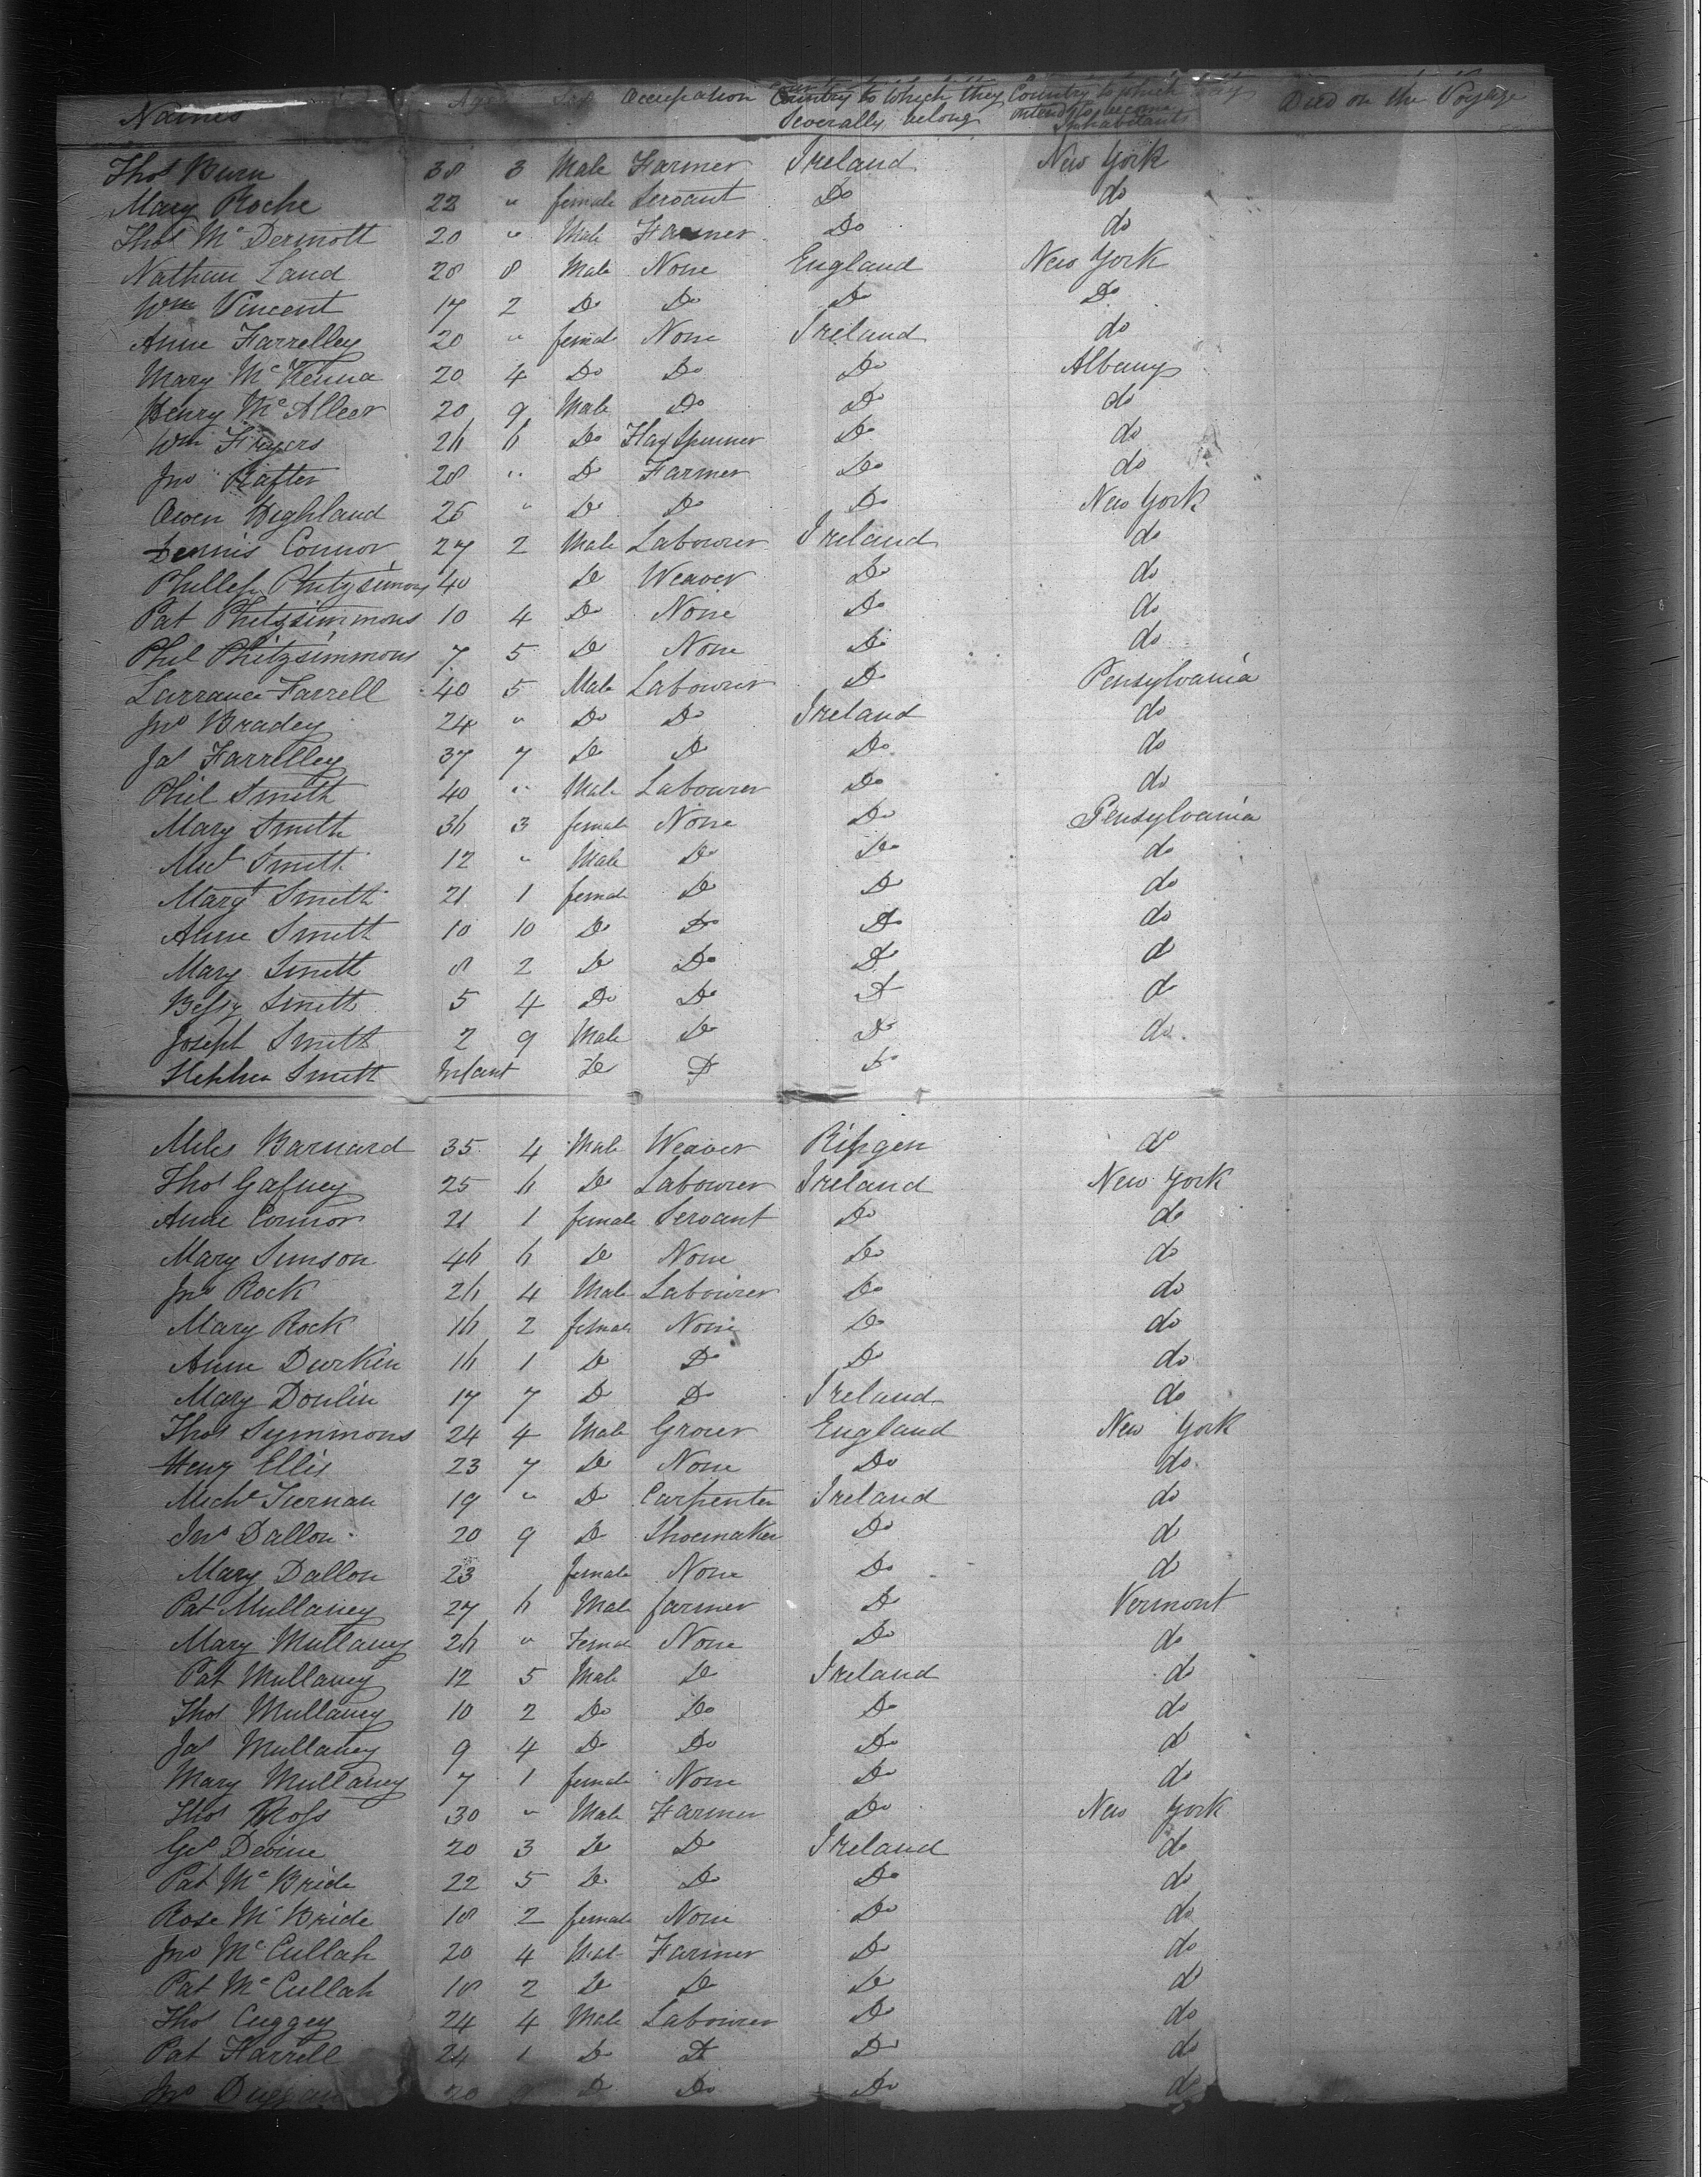 Names Age Sex Occupation Country to which they Severally belong Country to which they intend to become Inhabitants Died on the Voyage
Thos Burn 38 3 Male Farmer Ireland New York
Mary Roche 22 " female Servant Do do
Thos McDermott 20 " Male Farmer Do do
Nathan Land 28 8 Male None England New York
Wm Vincent 17 2 Do Do Do Do
Anne Farrelley 20 " female None Ireland do
Mary McKenna 20 4 Do Do Do Albany
Henry McAlleer 20 9 Male Do Do do
Wm Fryers 26 6 Do Flax Spinner Do do
Jno Rafter 28 " Do Farmer Do do
Owen Highland 25 " Do Do Do New York
Dennis Connor 27 2 Male Labourer Ireland do
Phillep Phitzsimons 40 Do Weaver Do do
Pat Phitzsimmons 10 4 Do None Do do
Phil Phitzsimmons 7 5 Do None Do do
Larrance Farrell 40 5 Male Labourer Do Pensylvania
Jno Bradey 24 " Do Do Ireland do
Jas Farrelley 37 7 Do Do Do do
Phil Smith 40 " Male Labourer Do do
Mary Smith 36 3 female None Do Pensylvania
Micl Smith 12 " Male Do Do do
Margt Smith 21 1 female Do Do do
Anne Smith 10 10 Do Do Do do
Mary Smith 8 2 Do Do Do do
Bessy Smith 5 4 Do Do Do do
Joseph Smith 2 9 Male Do Do do
Stephen Smith Infant Do Do Do
Miles Barnard 35 4 Male Weaver do
Thos Gafney 25 6 Do Labourer Ireland New York
Anne Connor 21 1 female Servant Do do
Mary Simson 46 6 Do None Do do
Jno Rock 26 4 Male Labourer Do do
Mary Rock 16 2 female None Do do
Anne Durkin 16 1 Do Do Do do
Mary Donlin 17 7 Do Do Ireland do
Thos Symmons 24 4 Male Grocer England New York
Henry Ellis 23 7 Do None Do do
Michl Tiernan 19 " Do Carpenter Ireland do
Jno Dallon 20 9 Do Shoemaker Do do
Mary Dallon 23 female None Do do
Pat Mullaney 27 6 Male farmer Do Vermont
Mary Mullaney 26 " Female None Do do
Pat Mullaney 12 5 Male Do Ireland do
Thos Mullaney 10 2 Do Do Do do
Jas Mullaney 9 4 Do Do Do do
Mary Mullaney 7 1 female None Do do
Thos Ross 30 " Male Farmer Do New York
Geo Devine 20 3 Do Do Ireland do
Pat McBride 22 5 Do Do Do do
Rose McBride 18 2 female None Do do
Jno McCullah 20 4 Male Farmer Do do
Pat McCullah 18 2 Do Do Do do
Thos Cuggey 24 4 Male Labourer Do do
Pat Farrell 24 1 Do Do Do do
Jno Duggan 20 Do Do Do do